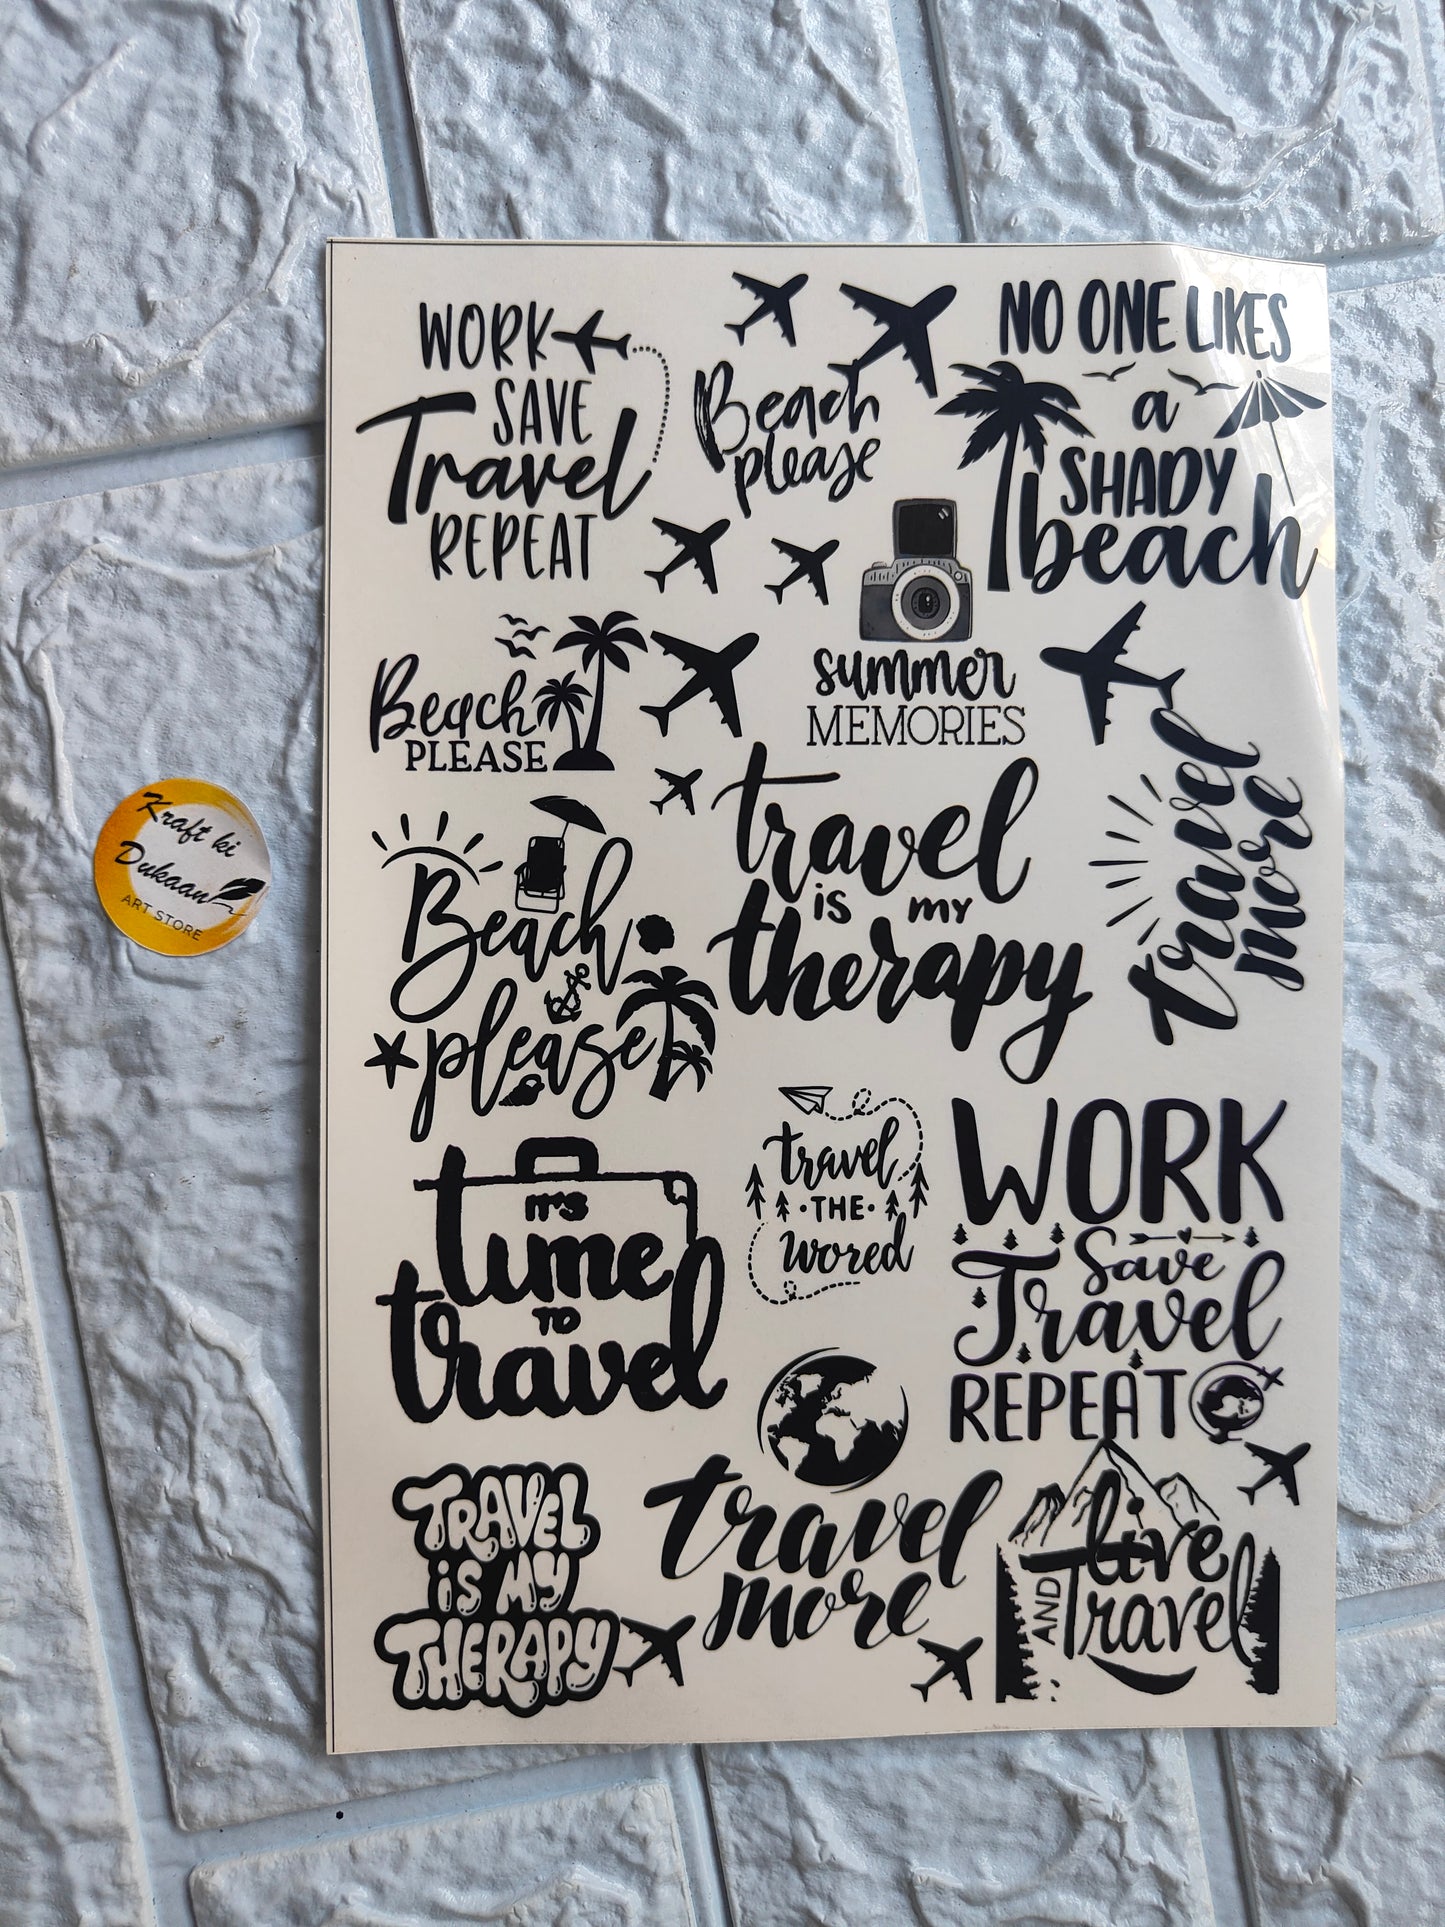 WORK
SAVE
Travel
REPEAT
Beach
please
NO ONE LIKES
a
SHADY
beach
Beach
PLEASE
summer
MEMORIES
travel
more
Kraft ki
Dukaan
ART STORE
Beach
please
travel
is my
therapy
IT'S
time
TO
travel
travel
·THE·
wored
WORK
Save
Travel
REPEAT
TRAVEL
is MY
THERAPY
travel
more
live
AND
Travel